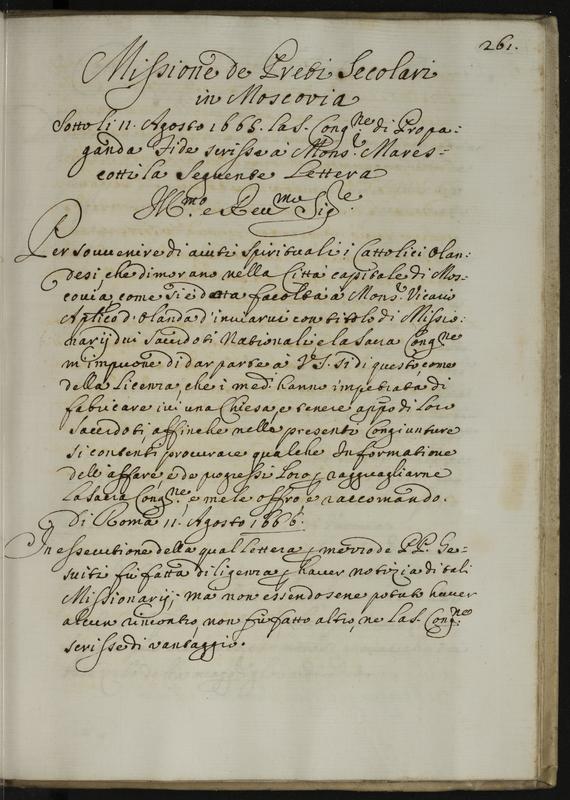 261.
Missione de Preti Secolari
in Moscovia
Sotto li 11. Agosto 1666. la S. Congne di Propa:
ganda Fide scrisse à Monsr. Mares=
cotti la seguente Lettera
Illmo e Revmo Sigre.
Per sovvenire di aiuti spirituali i Cattolici Olan:
desi, che dimorano nella Città capitale di Mos=
covia, come si è data facoltà à Monsr. Vicario
Aplico d'Olanda d'inviarvi con titolo di Missio:
narij dui Sacerdoti Nationali, e la Sacra Congne
m'impuone di dar parte à V.S. sì di questo, come
della Licenza, che i medi. hanno impetrata di
fabricare ivi una Chiesa, e tenere appo di Loro
Sacerdoti, affinche nelle presenti Congiunture
si contenti procurare qualche Informatione
dell'affare, e de progressi Loro p ragguagliarne
la Sacra Congne, e me le offro e raccomando.
Di Roma 11. Agosto 1666.
In essecutione della qual lettera p mezzo de PP. Ge=
suiti fù fatta diligenza p haver notizia di tali
Missionarij; ma non essendosene potuto haver
alcun rincontro non fù fatto altro, ne la S. Congne
scrisse di vantaggio.